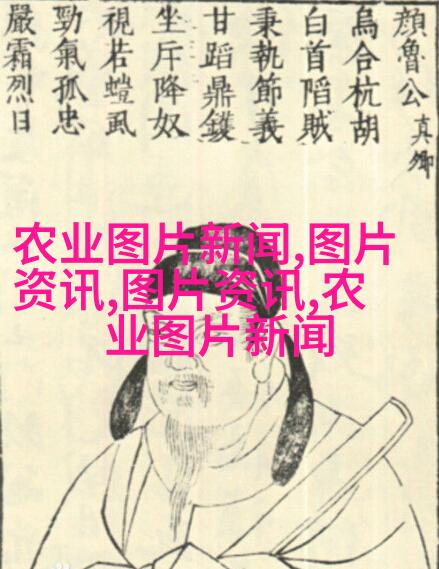 顏魯公真卿
烏合杭胡
白首陷賊
秉執節義
甘蹈鼎鑊
坐斥降奴
視若螘虱
勁氣孤忠
嚴霜烈日
农业图片新闻,图片
资讯,图片资讯,农
业图片新闻